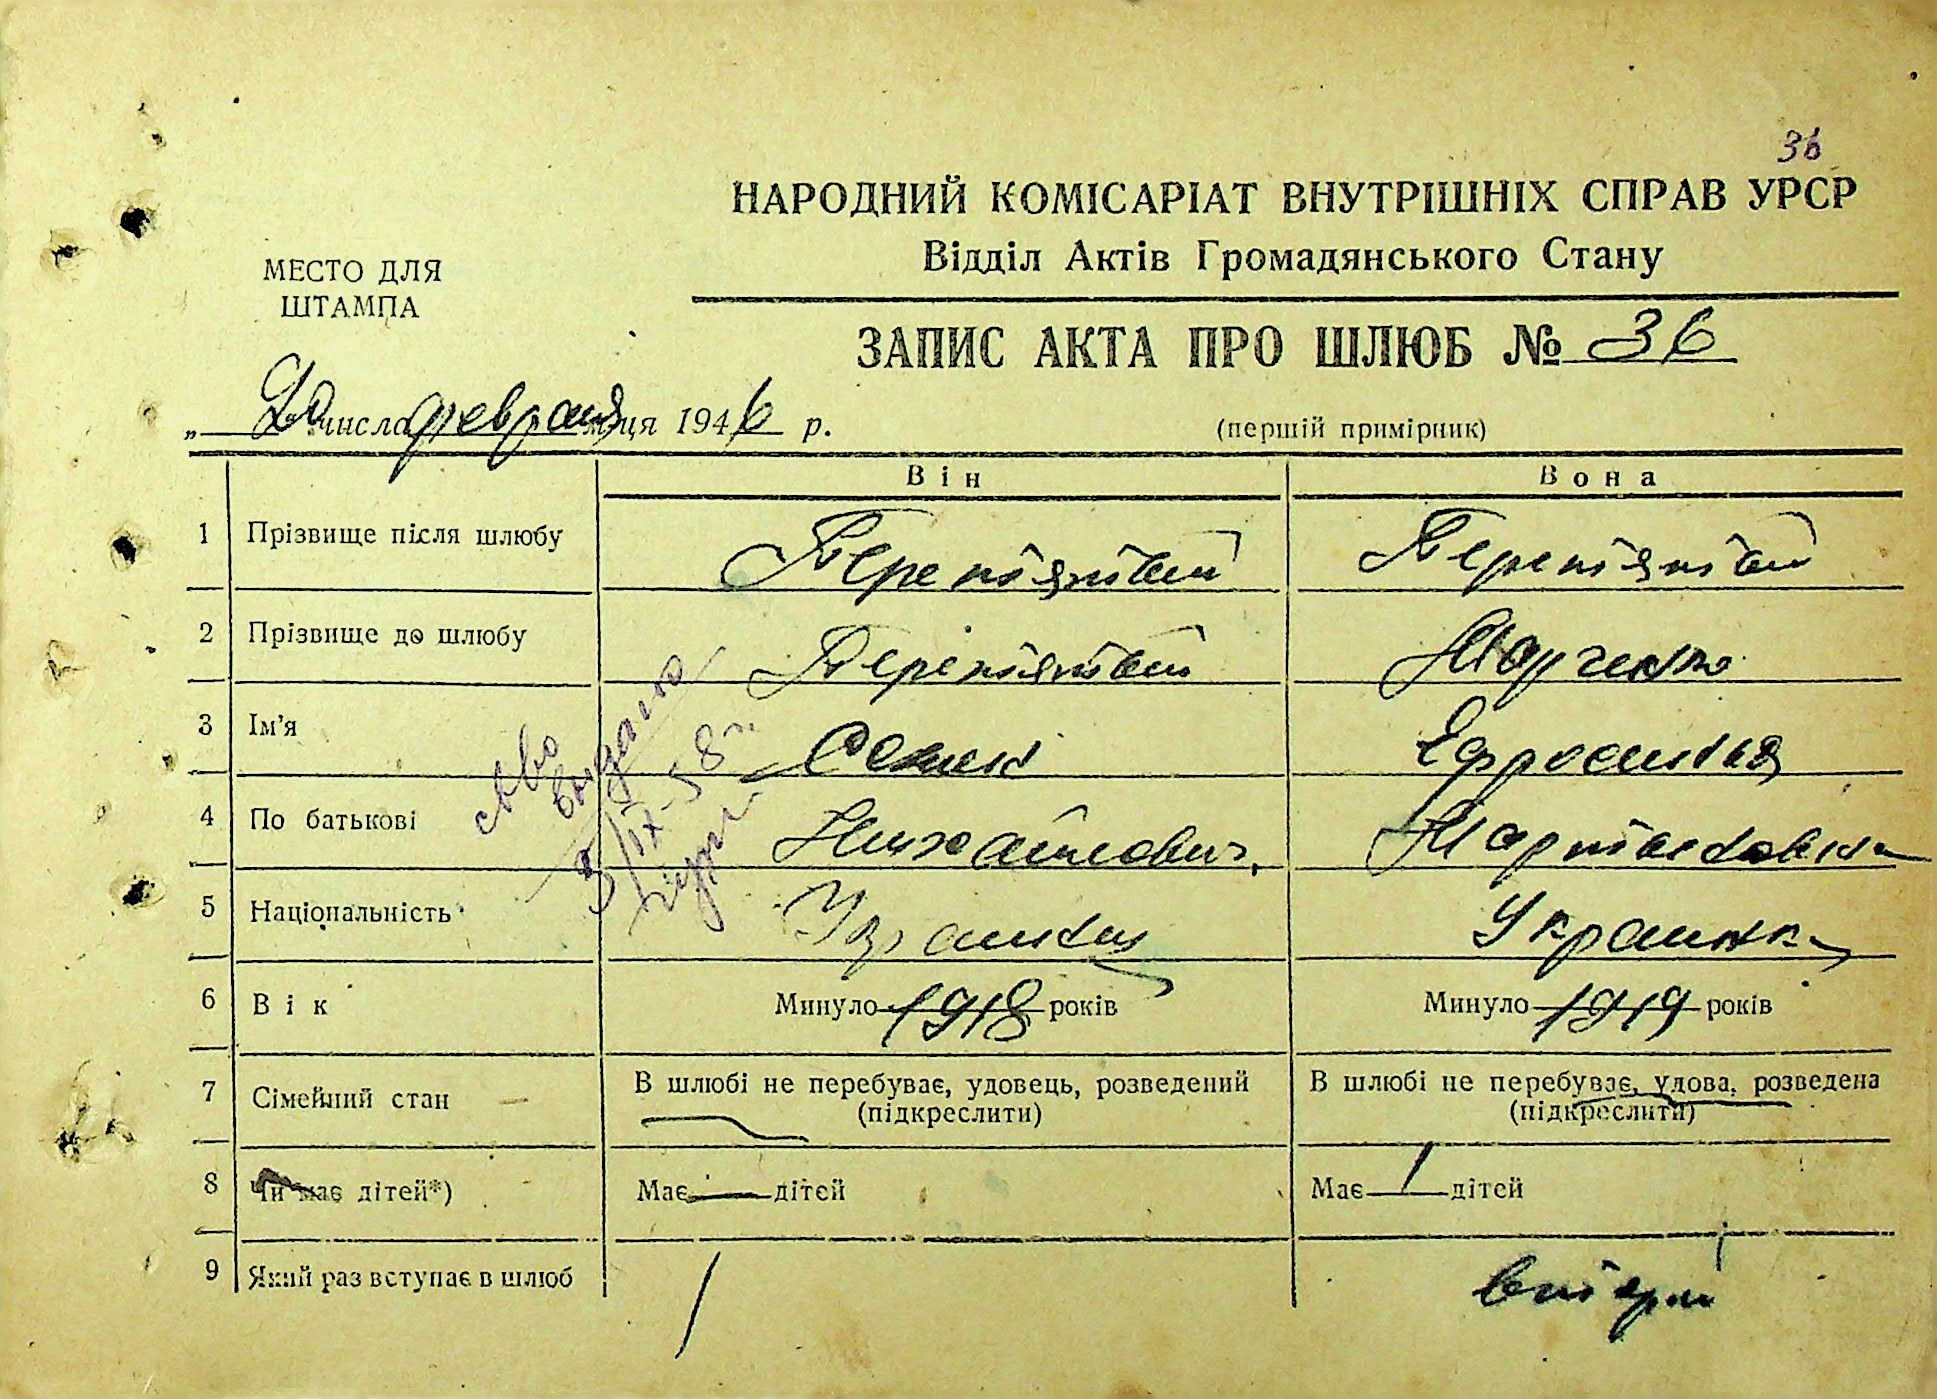 36
НАРОДНИЙ КОМІСАРІАТ ВНУТРІШНІХ СПРАВ УРСР
Відділ Актів Громадянського Стану
МЕСТО ДЛЯ
ШТАМПА
ЗАПИС АКТА ПРО ШЛЮБ № 36
„ 20 числа февраля м-ця 1946 р.
(перший примірник)
Він Вона
1 Прізвище після шлюбу
2 Прізвище до шлюбу Марченко
3 Ім'я Семен Ефросиния
4 По батькові Михайлович Мартыновна
5 Національність Украинец Украинка
6 Вік Минуло 1918 років Минуло 1919 років
7 Сімейний стан В шлюбі не перебуває, удовець, розведений (підкреслити) В шлюбі не перебуває, удова, розведена (підкреслити)
8 Чи має дітей*) Має — дітей Має 1 дітей
9 Який раз вступає в шлюб 1 вторй
св-во
выдано